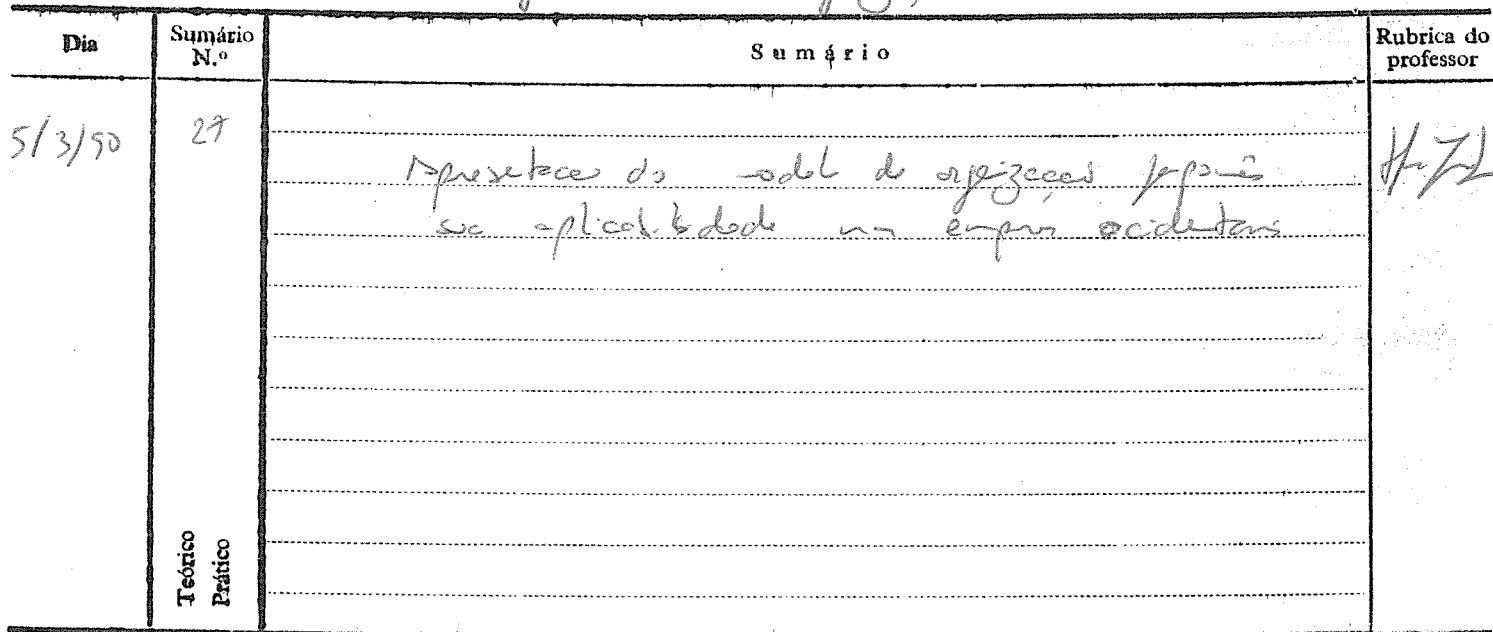 Dia
Sumário N.º
Sumário
Rubrica do professor
5/3/90
27
Apresentação do modelo de organização japonês
sua aplicabilidade nas empresas ocidentais
Teórico
Prático